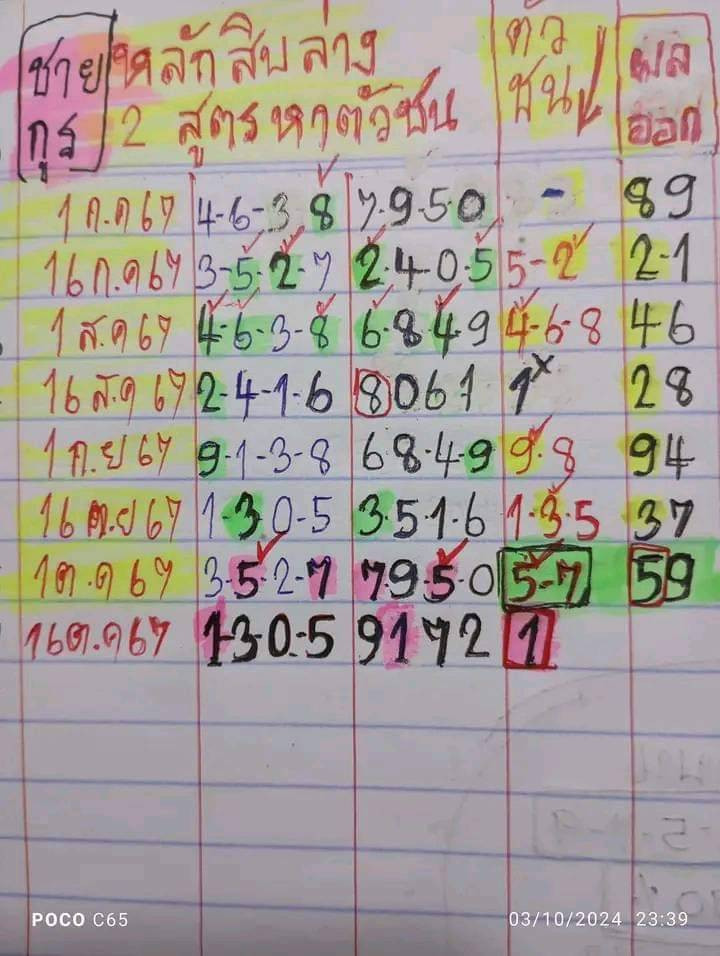 ชาย หลักสิบล่าง ตัว ผล
กูร 2 สูตรหาตัวชน ชน ออก
1 ก.ค 67 4-6-3 8 7.9.5.0 - 89
16 ก.ค 67 3-5-2-7 2.4-0.5 5-2 2-1
1 ส.ค 67 4-6-3-8 6-8-4.9 4-6-8 46
16 ส.ค 67 2-4-1-6 8061 1x 28
1 ก.ย 67 9-1-3-8 68-4-9 9.8 94
16 ก.ย 67 1-3.0-5 3.51.6 1-3.5 37
1ต.ค 67 3-5-2-7 7.9.5.0 5-7 59
16ต.ค67 1-3-0-5 9172 1
POCO C65 03/10/2024 23:39